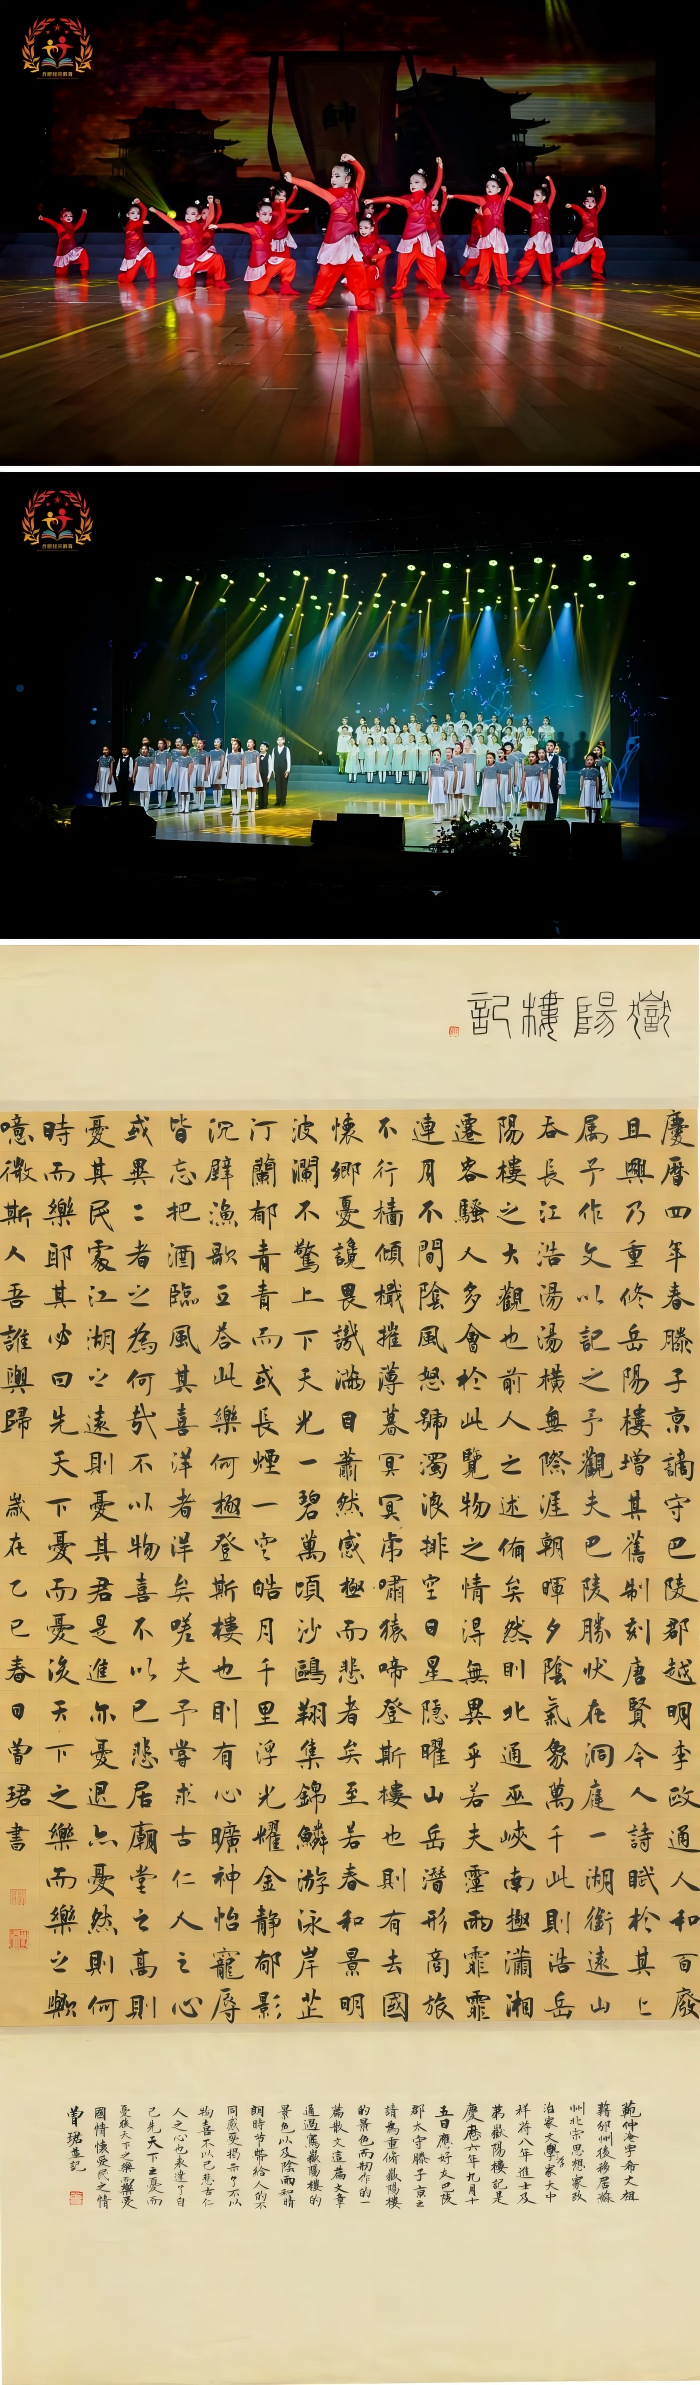 合肥经开教育
帥
合肥经开教育
嶽陽樓記
慶曆四年春滕子京謫守巴陵郡越明年政通人和百廢
且興乃重修岳陽樓增其舊制刻唐賢今人詩賦於其上
属予作文以記之予觀夫巴陵勝状在洞庭一湖銜遠山
吞長江浩湯湯橫無際涯朝暉夕陰氣象萬千此則浩岳
陽樓之大觀也前人之述俻矣然則北通巫峽南極瀟湘
遷客騷人多會於此覽物之情得無異乎若夫霪雨霏霏
連月不開陰風怒號濁浪排空日星隱曜山岳潛形商旅
不行檣傾檝摧薄暮冥冥虎嘯猿啼登斯樓也則有去國
懷鄉憂讒畏譏滿目蕭然感極而悲者矣至若春和景明
波瀾不驚上下天光一碧萬頃沙鷗翔集錦鱗游泳岸芷
汀蘭郁青青而或長煙一空皓月千里浮光耀金静郁影
沉璧漁歌互答此樂何極登斯樓也則有心曠神怡寵辱
皆忘把酒臨風其喜洋者洋矣嗟夫予嘗求古仁人之心
或異二者之為何哉不以物喜不以己悲居廟堂之高則
憂其民處江湖之遠則憂其君是進亦憂退亦憂然則何
時而樂耶其必曰先天下憂而憂後天下之樂而樂之歟
噫微斯人吾誰與歸 歲在乙巳春日曾珺書
範仲淹字希文祖
籍邠州後移居蘇
州北宋思想家政
治家文學家大中
祥符八年進士及
第嶽陽樓記是
慶曆六年九月十
五日應好友巴陵
郡太守滕子京之
請為重修嶽陽樓
的景色而制作的一
篇散文這篇文章
通過寫嶽陽樓的
景色以及陰雨和晴
朗時芳帶給人的不
同感受揭示了不以
物喜不以己悲古仁
人之心也表達了自
己先天下之憂而
憂後天下之樂而樂愛
國情懷愛民之情
曾珺並記